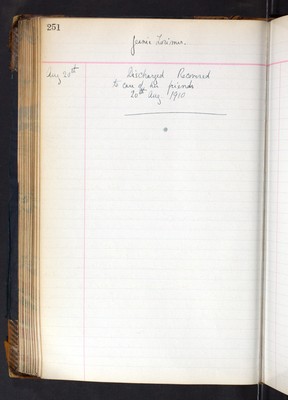 251
Jessie Lorimer.
Aug 20th
Discharged Recovered
to care of her friends
20th Aug. 1910